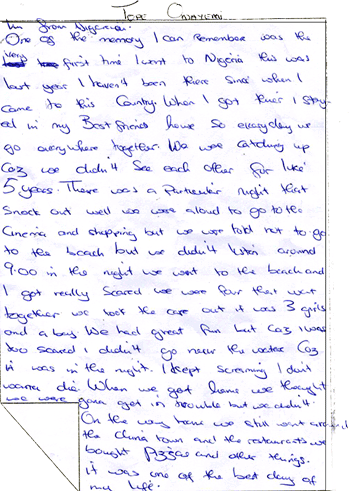 TOPE
I'm from Nigeria.
One of the memory I can remember was the
very first time I went to Nigeria this was
last year I haven't been there since when I
came to this Country When I got their I stay-
ed in my Best friends house so everyday we
go everywhere together. We were catching up
Coz we didn't See each other for like
5 years. There was a Particular night that
Snock out well we were aloud to go to the
Cinema and shopping but we were told not to go
to the beach but we didn't listen around
9:00 in the night we went to the beach and
I got really Scared we were four that went
together we took the car out it was 3 girls
and a boy. We had great fun but Coz I was
too scared I didn't go near the water Coz
it was in the night. I kept screaming I don't
wanna die. When we got home we thought
we were gona get in trouble but we didn't.
On the way home we still went
the china town and the restaurants we
bought Pizzas and other things.
it was one of the best day of
my life.